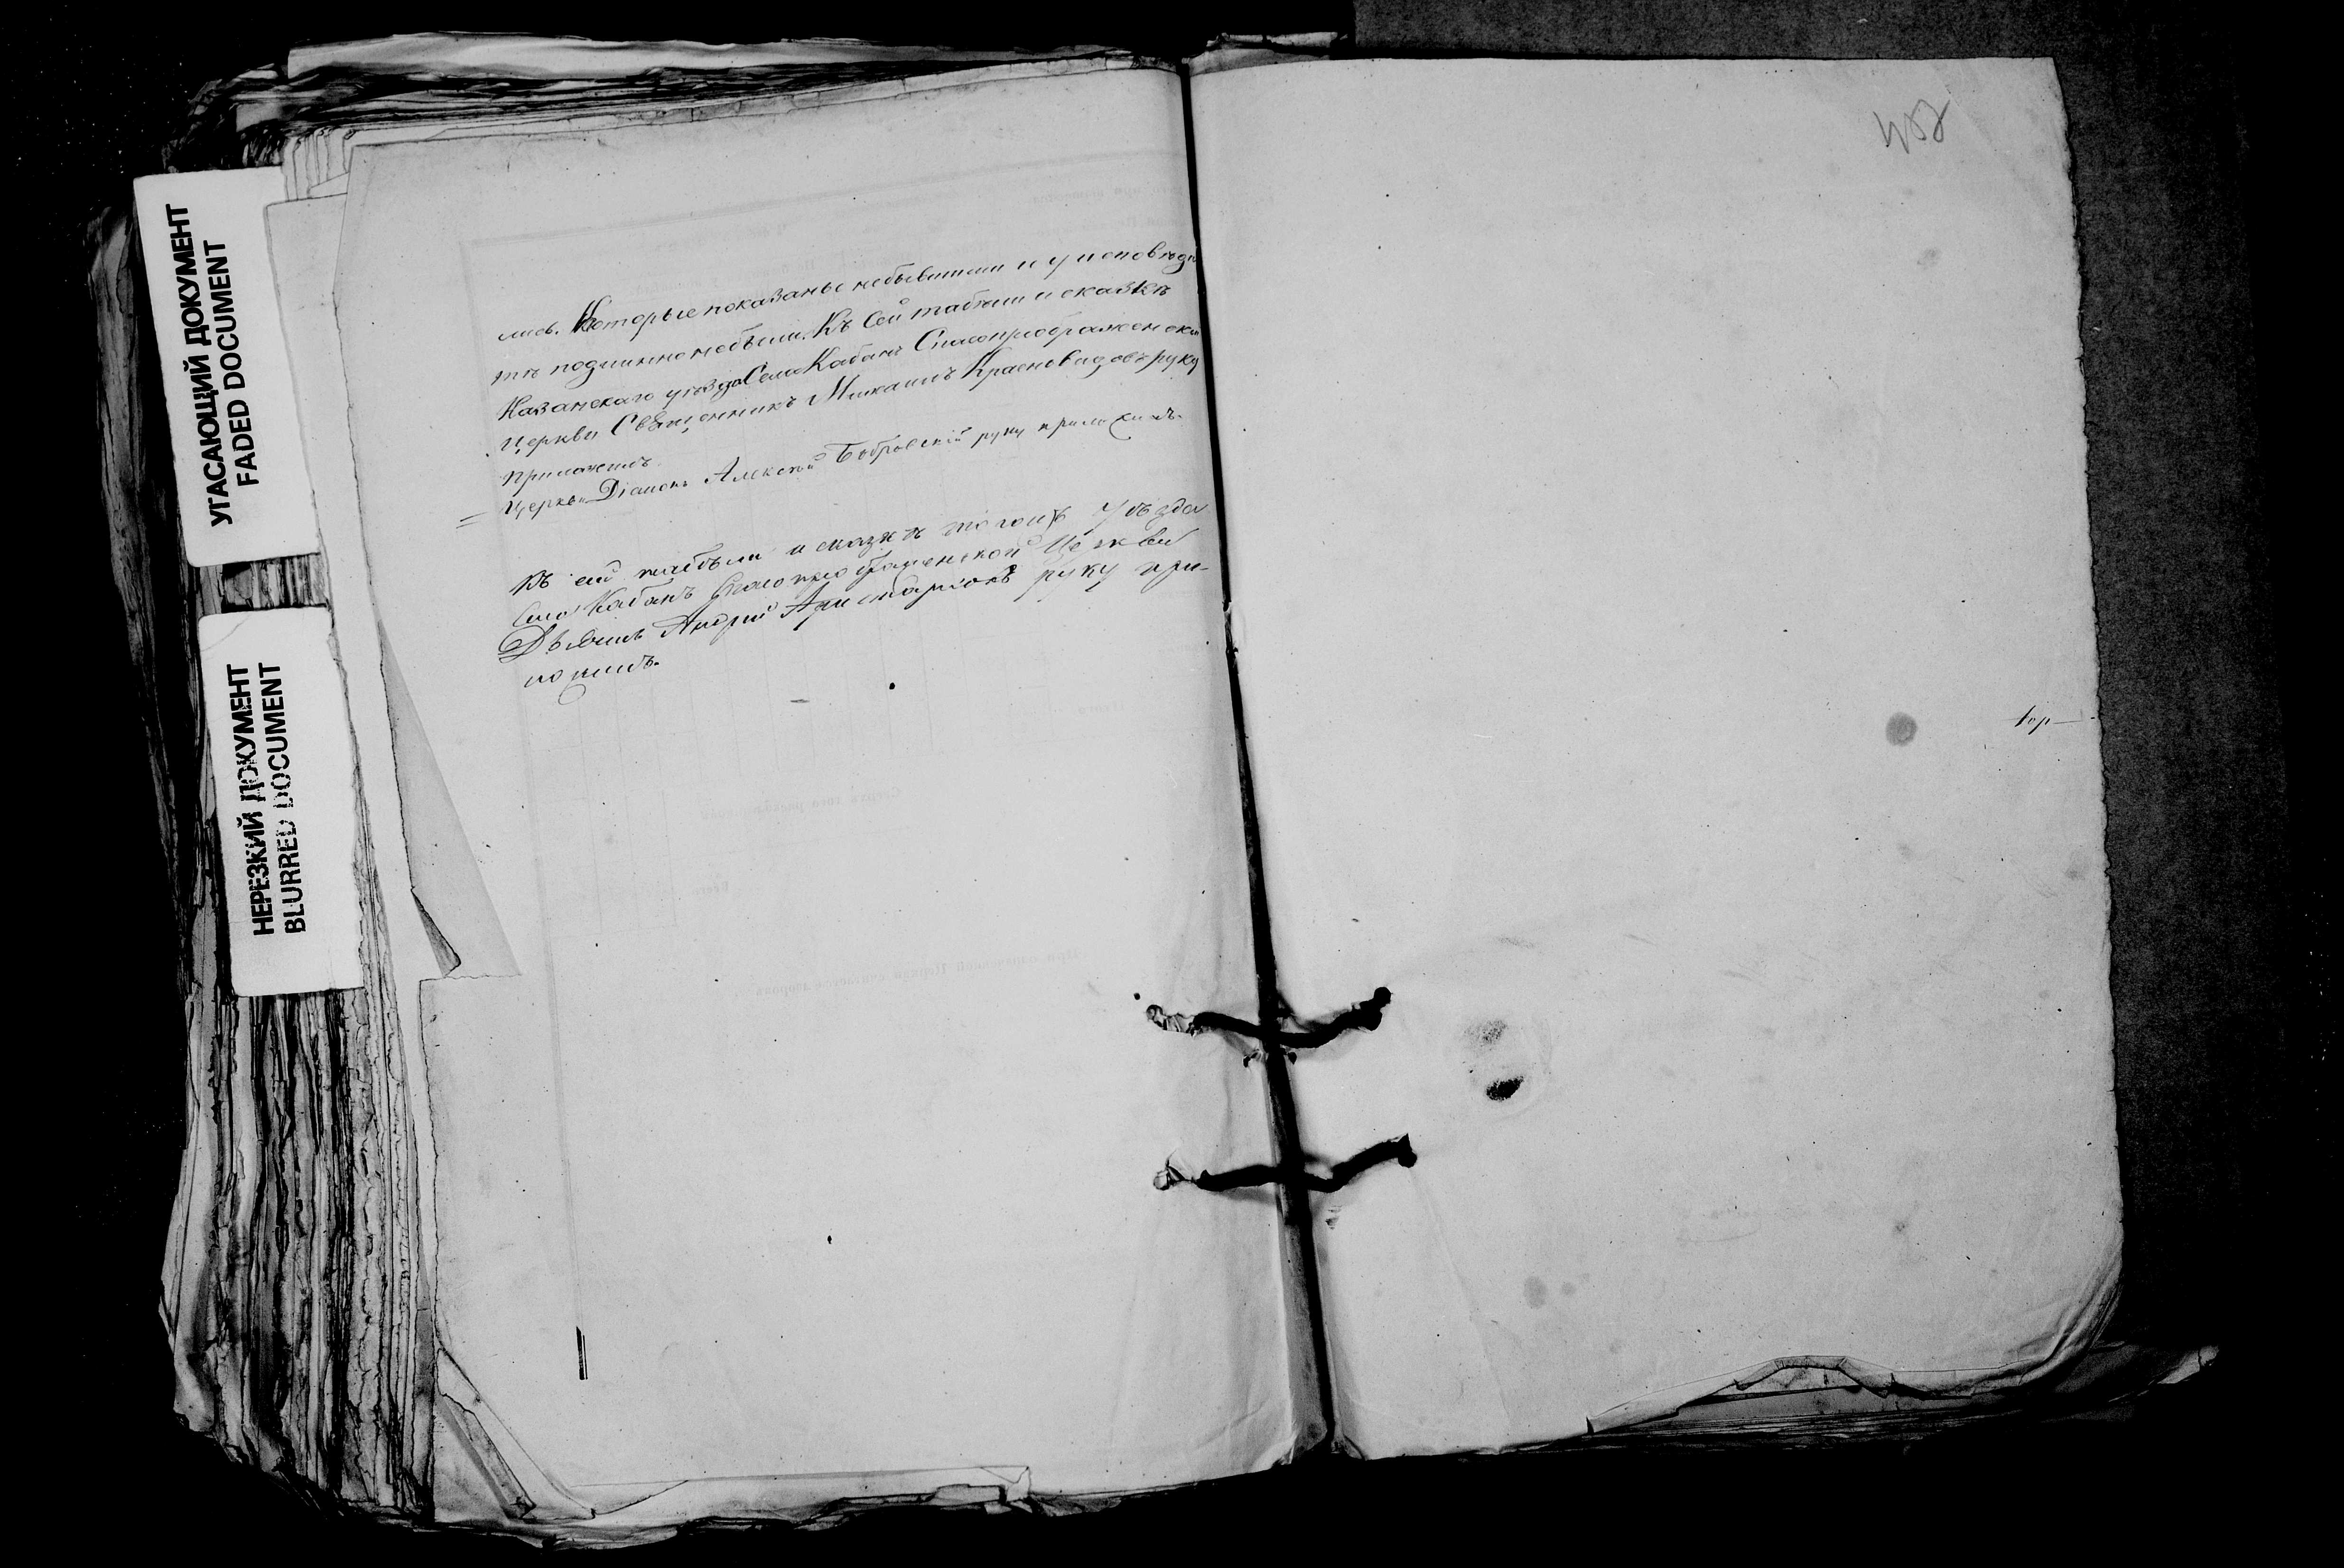 УГАСАЮЩИЙ ДОКУМЕНТ
FADED DOCUMENT
НЕРЕЗКИЙ ДОКУМЕНТ
BLURRED DOCUMENT
лись. Которые показаны небывшими и у исповеди
тѣ подлинно небыли. Къ сей табели и сказкѣ
Казанскаго уѣзда Села Кабанъ Спасопреображенской
Церкви Священникъ Михаилъ Красновидовъ руку
приложилъ.
Церкви Діаконъ Алексей Бобровскій руку приложилъ.
Къ сей табели и сказкѣ тогожъ Уѣзда
Села Кабанъ Спасопреображенской Церкви
Дьячокъ Андрей Аристарховъ руку при-
ложилъ.